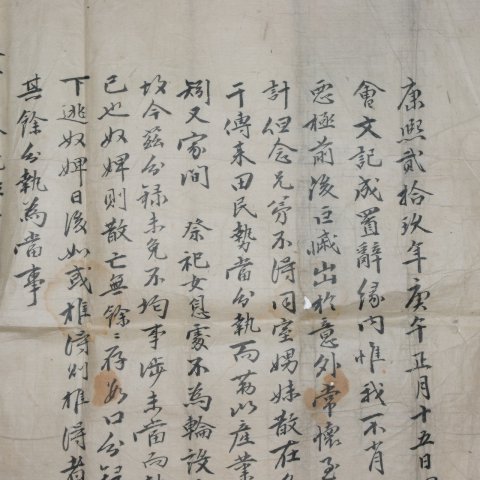 康熙貳拾玖年庚午正月十五日同
會文記成置辭緣內惟我不肖
惡極前後巨慽出於意外常懷
計但念兄弟不得同室娚妹散在各
干傳來田民勢當分執而第以產業
矧又家間 祭祀女息處不爲輪設
故今茲分錄未免不均事涉未當而
已也奴婢則散亡無餘〻存數口分
下逃奴婢日後如或推得則推得者
其餘分執爲當事